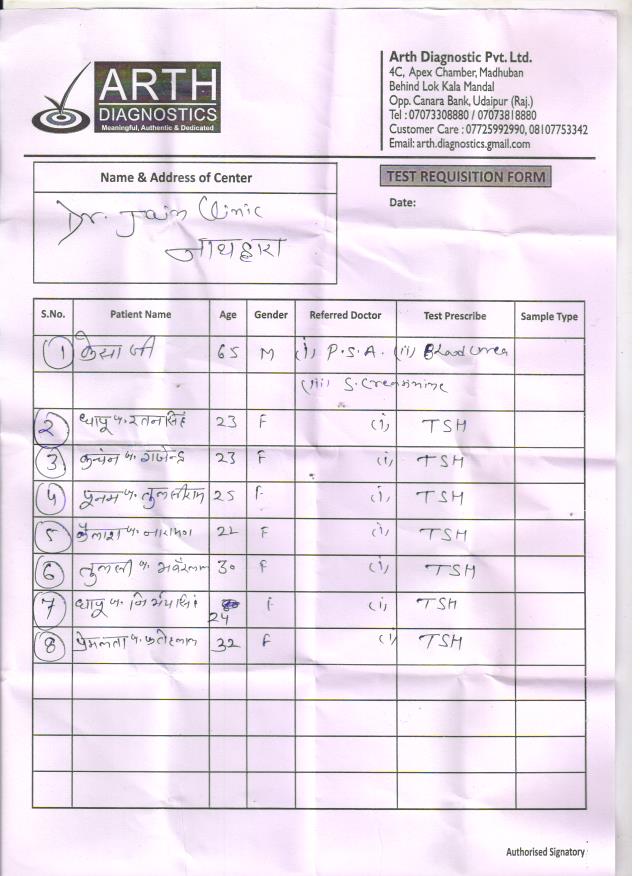 ARTH
DIAGNOSTICS
Meaningful, Authentic & Dedicated
Arth Diagnostic Pvt. Ltd.
4C, Apex Chamber, Madhuban
Behind Lok Kala Mandal
Opp. Canara Bank, Udaipur (Raj.)
Tel : 07073308880 / 07073818880
Customer Care : 07725992990, 08107753342
Email: arth.diagnostics.gmail.com
Name & Address of Center
TEST REQUISITION FORM
Date:
Dr. Jain Clinic
नाथद्वारा
S.No. Patient Name Age Gender Referred Doctor Test Prescribe Sample Type
1 केसा जी 65 M (i) P.S.A. (ii) Blood Urea
(iii) S. Creatinine
2 धापू प. रतनसिंह 23 F (i) TSH
3 कंचन प. गजेन्द्र 23 F (i) TSH
4 पूनम प. तुलसीराम 25 F (i) TSH
5 कैलाश प. नारायण F (i) TSH
6 तुलसी प. भवँरलाल 30 F (i) TSH
7 धापू प. 24 F (i) TSH
8 प्रेमलता प. फतेहलाल 32 F (i) TSH
Authorised Signatory